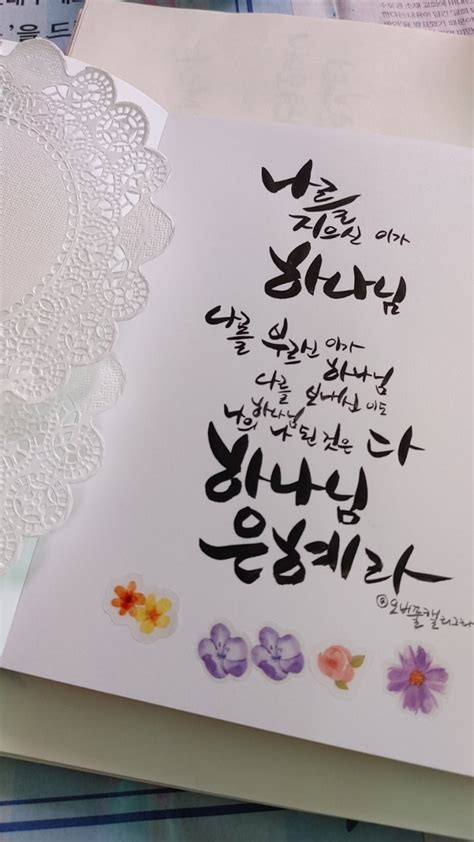 나를
지으신 이가
하나님
나를 부르신 이가
하나님
나를 보내신 이도
하나님
나의 나 된 것은 다
하나님
은혜라